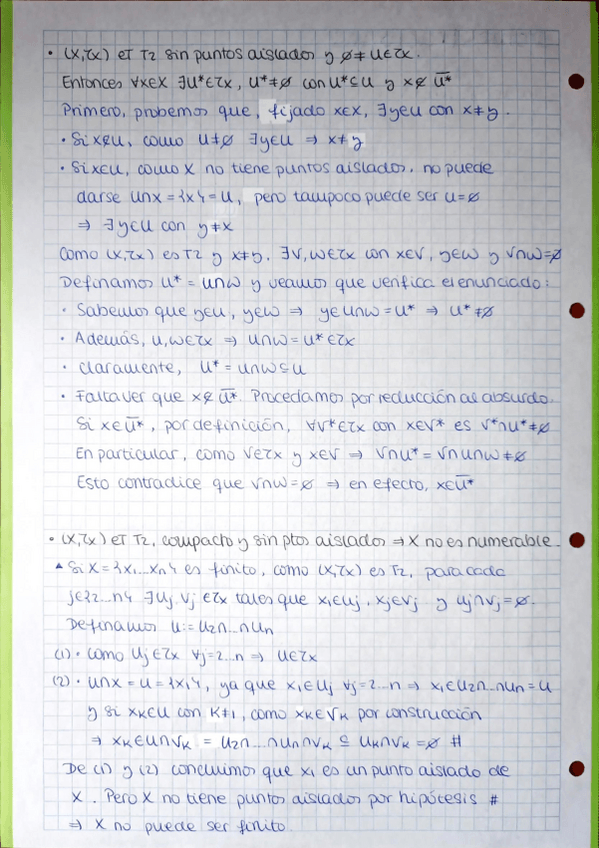 • (X,τx) ET T2 sin puntos aislados y ∅≠U∈τx.
Entonces ∀x∈X ∃U*∈τx, U*≠∅ con U*⊆U y x∉ U̅*̅
Primero, probemos que, fijado x∈X, ∃y∈U con x≠y.
· Si x∉U, como U≠∅ ∃y∈U ⇒ x≠y
· Si x∈U, como X no tiene puntos aislados, no puede
darse U∩X={x}=U, pero tampoco puede ser U=∅
⇒ ∃y∈U con y≠x
Como (X,τx) es T2 y x≠y, ∃V,W∈τx con x∈V, y∈W y V∩W=∅
Definamos U* = U∩W y veamos que verifica el enunciado:
· Sabemos que y∈U, y∈W ⇒ y∈U∩W=U* ⇒ U*≠∅
· Además, U,W∈τx ⇒ U∩W=U*∈τx
· Claramente, U* = U∩W⊆U
· Falta ver que x∉ U̅*̅. Procedamos por reducción al absurdo.
Si x∈U̅*̅, por definición, ∀V*∈τx con x∈V* es V*∩U*≠∅
En particular, como V∈τx y x∈V ⇒ V∩U*=V∩U∩W≠∅
Esto contradice que V∩W=∅ ⇒ en efecto, x∈U̅*̅
• (X,τx) ET T2, compacto y sin ptos aislados ⇒ X no es numerable.
▲ Si X={x1...xn} es finito, como (X,τx) es T2, para cada
j∈{2...n} ∃Uj,Vj ∈τx tales que x1∈Uj, xj∈Vj y Uj∩Vj=∅.
Definamos U:=U2∩...∩Un
(1) · Como Uj∈τx ∀j=2...n ⇒ U∈τx
(2) · U∩X=U={x1}, ya que x1∈Uj ∀j=2...n ⇒ x1∈U2∩...∩Un=U
y si xk∈U con k≠1, como xk∈Vk por construcción
⇒ xk∈U∩Vk = U2∩...∩Un∩Vk ⊆ Uk∩Vk=∅ #
De (1) y (2) concluimos que x1 es un punto aislado de
X. Pero X no tiene puntos aislados por hipótesis #
⇒ X no puede ser finito.